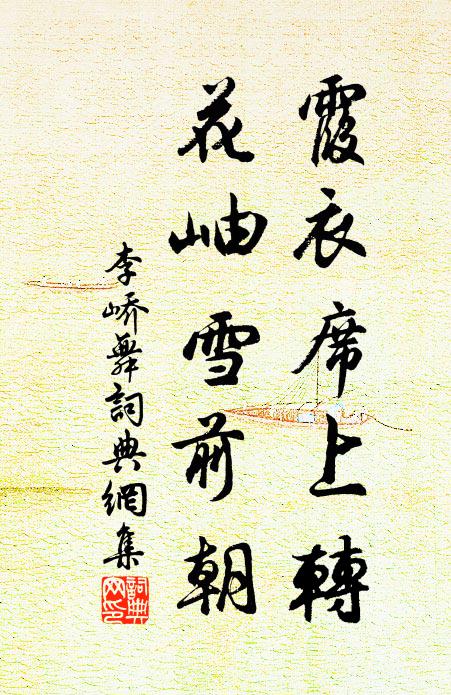 霞衣席上轉
花岫雪前朝
李峤舞詞典網集
詞典
网印